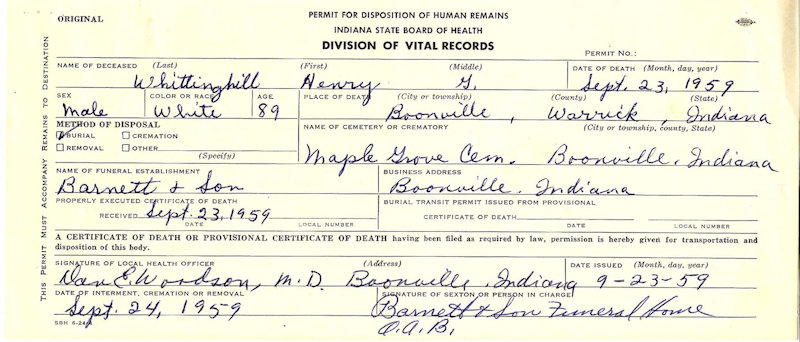 ORIGINAL
PERMIT FOR DISPOSITION OF HUMAN REMAINS
INDIANA STATE BOARD OF HEALTH
DIVISION OF VITAL RECORDS
PERMIT NO.:
THIS PERMIT MUST ACCOMPANY REMAINS TO DESTINATION
NAME OF DECEASED (Last) (First) (Middle) DATE OF DEATH (Month, day, year)
Whittinghill Henry G. Sept. 23, 1959
SEX COLOR OR RACE AGE PLACE OF DEATH (City or township) (County) (State)
Male White 89 Boonville, Warrick, Indiana
METHOD OF DISPOSAL NAME OF CEMETERY OR CREMATORY (City or township, county, State)
BURIAL CREMATION
REMOVAL OTHER
(Specify)
Maple Grove Cem. Boonville, Indiana
NAME OF FUNERAL ESTABLISHMENT BUSINESS ADDRESS
Barnett & Son Boonville, Indiana
PROPERLY EXECUTED CERTIFICATE OF DEATH BURIAL TRANSIT PERMIT ISSUED FROM PROVISIONAL
RECEIVED Sept. 23, 1959 CERTIFICATE OF DEATH
DATE LOCAL NUMBER DATE LOCAL NUMBER
A CERTIFICATE OF DEATH OR PROVISIONAL CERTIFICATE OF DEATH having been filed as required by law, permission is hereby given for transportation and
disposition of this body.
SIGNATURE OF LOCAL HEALTH OFFICER (Address) DATE ISSUED (Month, day, year)
Dan E. Woodson, M.D. Boonville, Indiana 9-23-59
DATE OF INTERMENT, CREMATION OR REMOVAL SIGNATURE OF SEXTON OR PERSON IN CHARGE
Sept. 24, 1959 Barnett & Son Funeral Home
O.A.B.
SBH 6-24